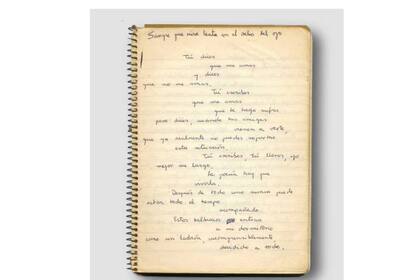 Sangre que mira lenta en el ocho del ojo
Tú dices
que me amas
y dices
que no me amas.
Tú escribes
que me amas
que te hago sufrir
pero dices, cuando tus amigas
vienen a verte,
que ya realmente no puedes soportar
esta situación.
Tú escribes, tú lloras, yo
mejor me largo.
la poesía hay que
vivirla.
Después de todo uno nunca puede
estar todo el tiempo
acompañado.
Estos balbuceos entran
a mi dormitorio
como un ladrón, incomprensiblemente
decidido a todo.